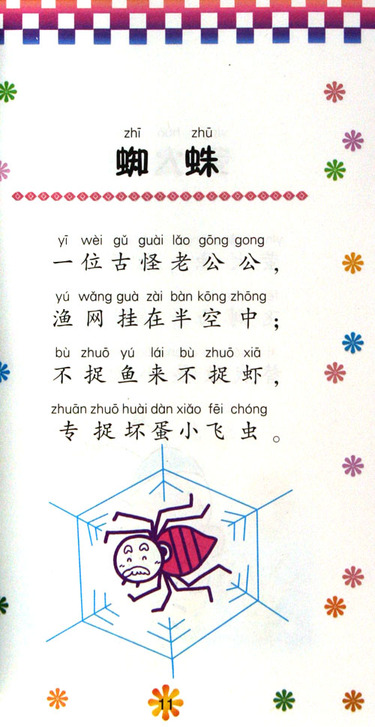 zhī zhū
蜘蛛
yī wèi gǔ guài lǎo gōng gong
一位古怪老公公，
yú wǎng guà zài bàn kōng zhōng
渔网挂在半空中；
bù zhuō yú lái bù zhuō xiā
不捉鱼来不捉虾，
zhuān zhuō huài dàn xiǎo fēi chóng
专捉坏蛋小飞虫。
11